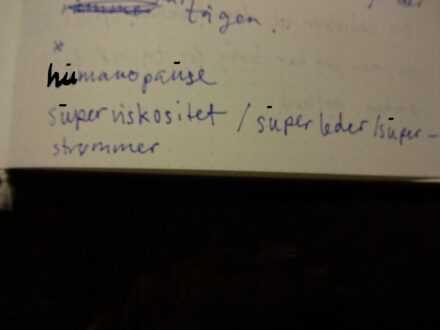 tågen.
*
humanopause
superviskositet / superleder/super-
strømmer